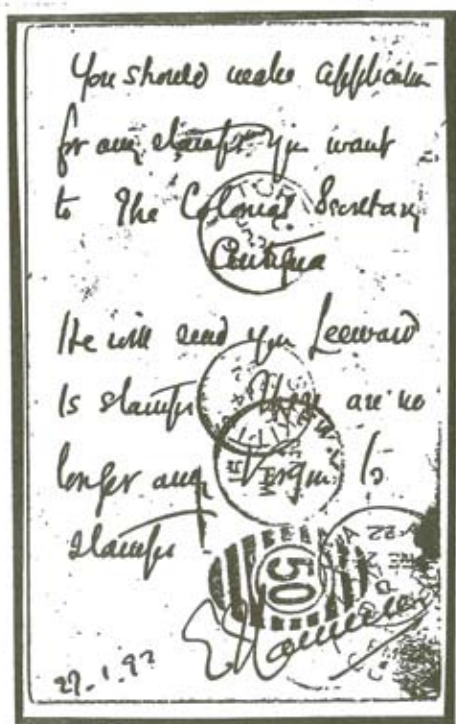 You should make application
for any stamps you want
to The Colonial Secretary
Antigua
He will send you Leeward
Is stamps. There are no
longer any Virgin Is
stamps.
50
27.1.92